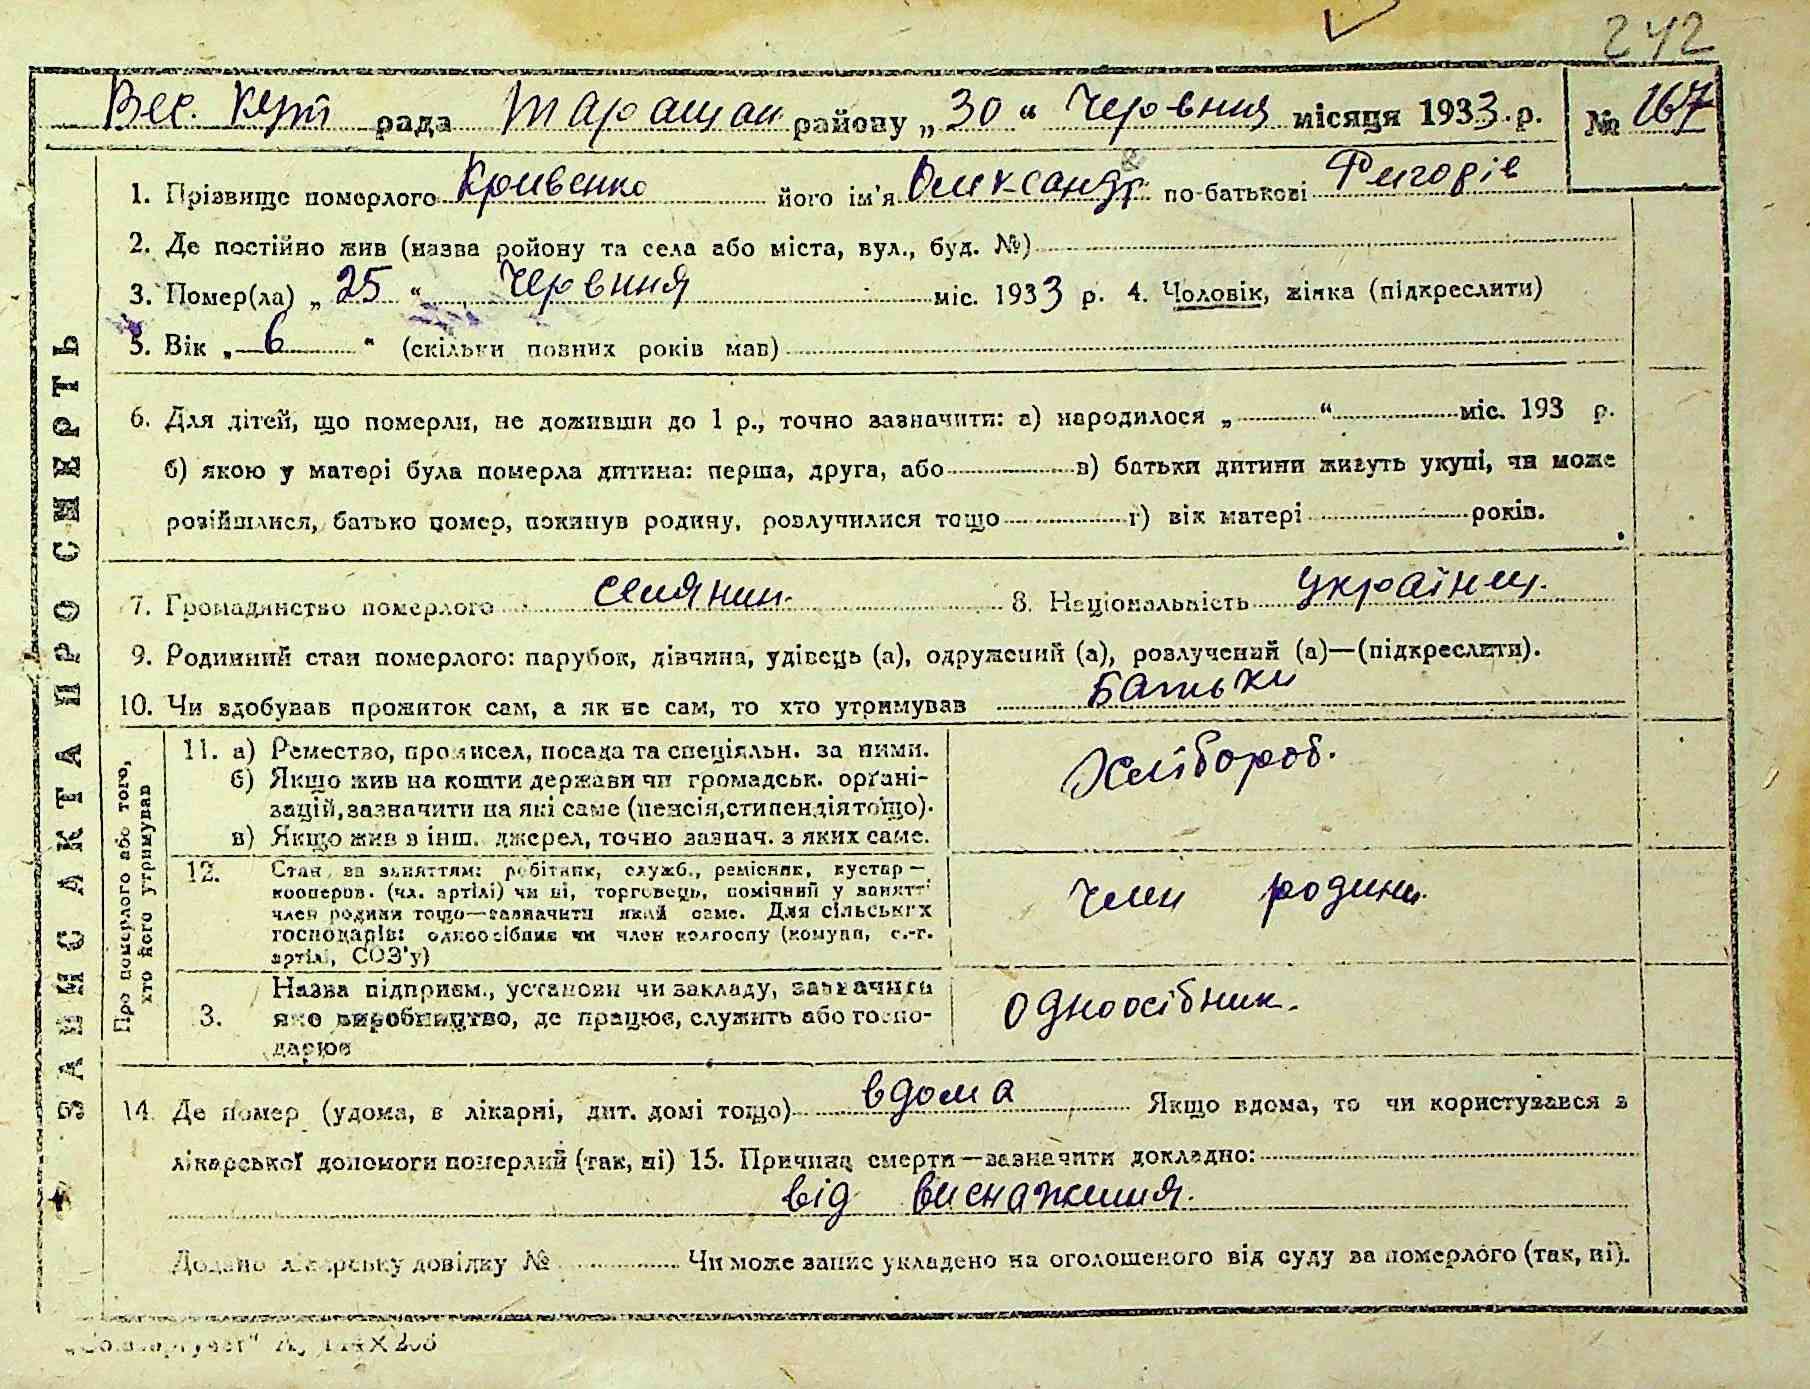 242
Вес. Кут рада Таращан району „30“ Червния місяця 1933 р. № 167
1. Прізвище померлого Кривенко його ім'я Олександр по-батькові Григорів
2. Де постійно жив (назва ройону та села або міста, вул., буд. №)
3. Помер(ла) „25“ Червння міс. 1933 р. 4. Чоловік, жінка (підкреслити)
5. Вік „6“ (скільки повних років мав)
6. Для дітей, що померли, не доживши до 1 р., точно зазначити: а) народилося „ “ міс. 193 р.
б) якою у матері була померла дитина: перша, друга, або в) батьки дитини живуть укупі, чи може
розійшлися, батько помер, покинув родину, розлучилися тощо г) вік матері років.
7. Громадянство померлого селянин. 8. Національність українец.
9. Родинний стан померлого: парубок, дівчина, удівець (а), одружений (а), розлучений (а)—(підкреслити).
10. Чи здобував прожиток сам, а як не сам, то хто утримував батьки
ЗАПИС АКТА ПРО СМЕРТЬ
Про померлого або того,
хто його утримував
11. а) Ремество, промисел, посада та спеціяльн. за ними. Хлібороб.
б) Якщо жив на кошти держави чи громадськ. орґані-
зацій, зазначити на які саме (пенсія, стипендія тощо).
в) Якщо жив з інш. джерел, точно зазнач. з яких саме.
12. Стан за заняттям: робітник, служб., ремісник, кустар—
кооперов. (чл. артілі) чи ні, торговець, помічний у занятті
член родини тощо—зазначити який саме. Для сільських
господарів: одноосібник чи член колгоспу (комуни, с.-г.
артілі, СОЗ'у)
член родини.
Назва підприєм., установи чи закладу, зазначити
3. яке виробництво, де працює, служить або госпо-
дарює
одноосібник.
14. Де помер (удома, в лікарні, дит. домі тощо) вдома Якщо вдома, то чи користувався з
лікарської допомоги померлий (так, ні) 15. Причина смерти—зазначити докладно:
від виснажиния.
Додано лікарську довідку № Чи може запис укладено на оголошеного від суду за померлого (так, ні).